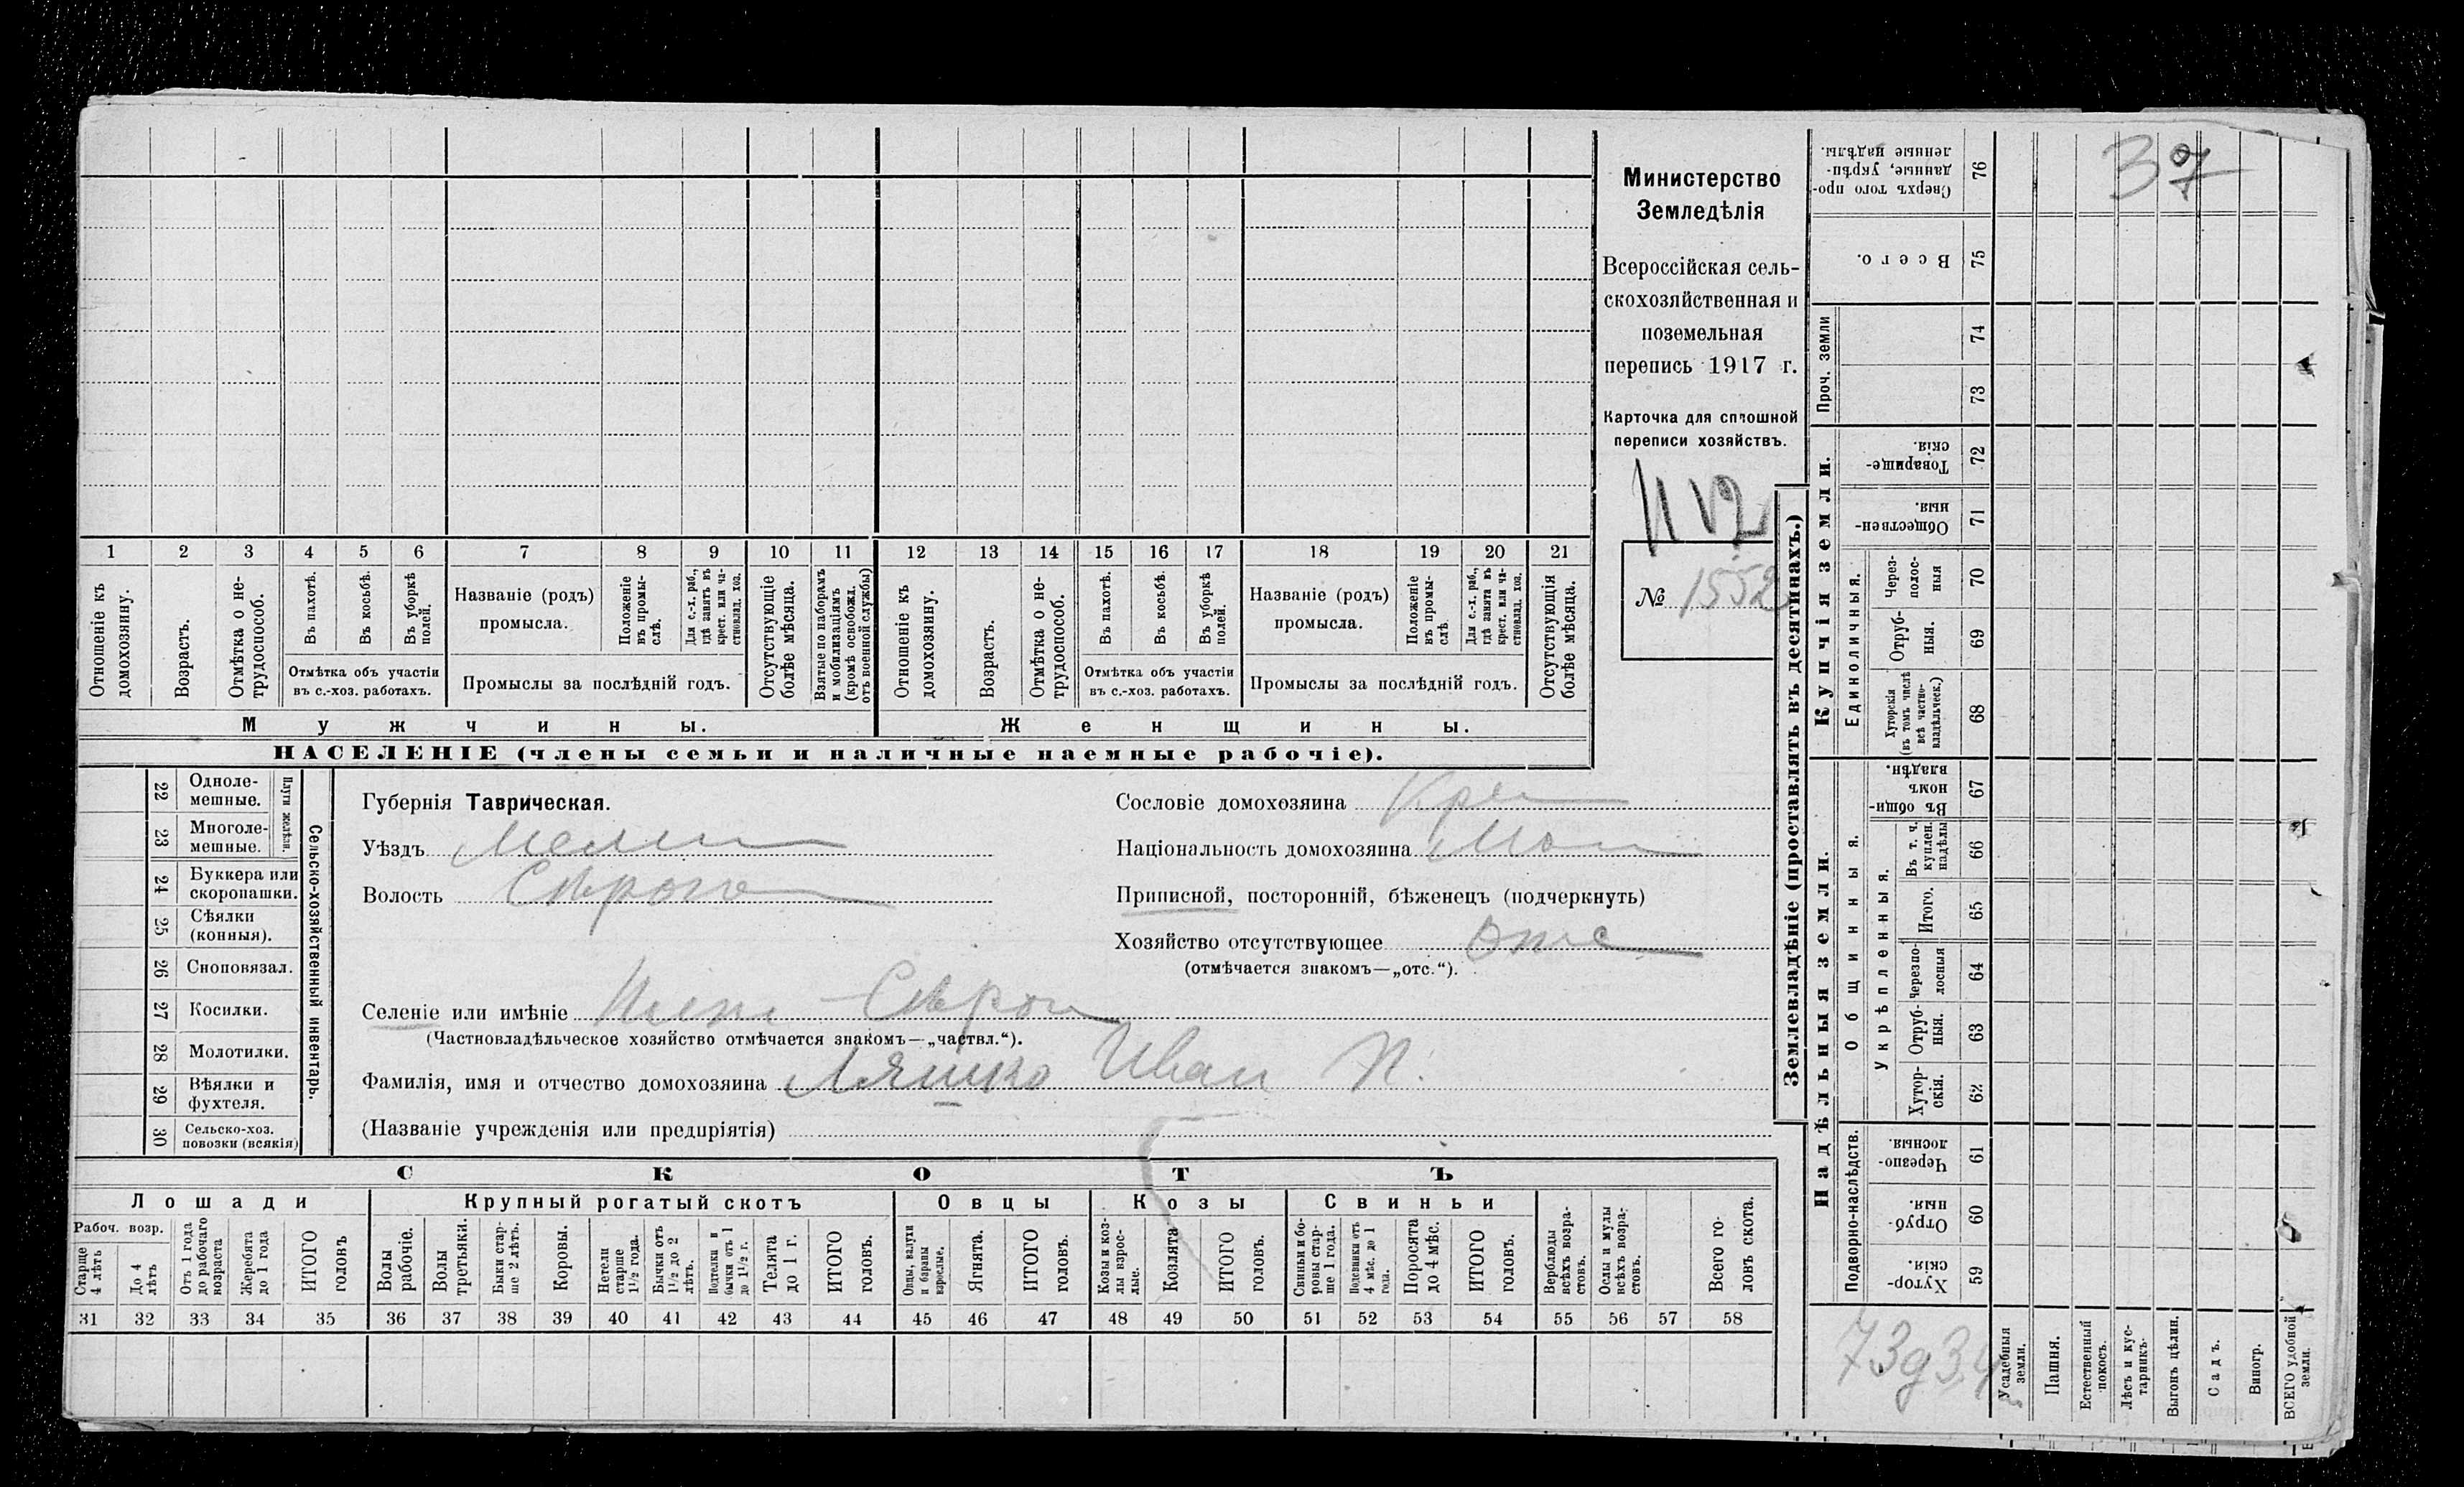 Министерство
Земледѣлія
Всероссійская сель-
скохозяйственная и
поземельная
перепись 1917 г.
Карточка для сплошной
переписи хозяйствъ.
№ 1552
1 2 3 4 5 6 7 8 9 10 11 12 13 14 15 16 17 18 19 20 21
Отношеніе къ домохозяину.
Возрастъ.
Отмѣтка о не-трудоспособ.
Въ пахотѣ.
Въ косьбѣ.
Въ уборкѣ полей.
Отмѣтка объ участіи
въ с.-хоз. работахъ.
Названіе (родъ)
промысла.
Положеніе въ промы-слѣ.
Для с.-х. раб., гдѣ занятъ въ крест. или ча-стновлад. хоз.
Промыслы за послѣдній годъ.
Отсутствующіе болѣе мѣсяца.
Взятые по наборамъ и мобилизаціямъ (кромѣ освобожд. отъ военной службы)
Отношеніе къ домохозяину.
Возрастъ.
Отмѣтка о не-трудоспособ.
Въ пахотѣ.
Въ косьбѣ.
Въ уборкѣ полей.
Отмѣтка объ участіи
въ с.-хоз. работахъ.
Названіе (родъ)
промысла.
Положеніе въ промы-слѣ.
Для с.-х. раб., гдѣ занята въ крест. или ча-стновлад. хоз.
Промыслы за послѣдній годъ.
Отсутствующія болѣе мѣсяца.
Мужчины.
Женщины.
НАСЕЛЕНІЕ (члены семьи и наличные наемные рабочіе).
22 Одноле-мешные.
23 Многоле-мешные.
Плуги желѣзн.
24 Буккера или скоропашки.
25 Сѣялки (конныя).
26 Сноповязал.
27 Косилки.
28 Молотилки.
29 Вѣялки и фухтеля.
30 Сельско-хоз. повозки (всякія)
Сельско-хозяйственный инвентарь.
Губернія Таврическая.
Уѣздъ Мелит
Волость Сѣрогоз
Сословіе домохозяина Крес
Національность домохозяина
Приписной, посторонній, бѣженецъ (подчеркнуть)
Хозяйство отсутствующее отс
(отмѣчается знакомъ—„отс.“).
Селеніе или имѣніе Нижн Сѣрог
(Частновладѣльческое хозяйство отмѣчается знакомъ—„частвл.“).
Фамилія, имя и отчество домохозяина Ляшко Иван П.
(Названіе учрежденія или предпріятія)
СКОТЪ
Лошади
Крупный рогатый скотъ
Овцы
Козы
Свиньи
Рабоч. возр.
Старше 4 лѣтъ
До 4 лѣтъ
Отъ 1 года до рабочаго возраста
Жеребята до 1 года
ИТОГО головъ
Волы рабочіе.
Волы третьяки.
Быки стар-ше 2 лѣтъ.
Коровы.
Нетели старше 1½ года.
Бычки отъ 1½ до 2 лѣтъ.
Подтелки и бычки отъ 1 до 1½ г.
Телята до 1 г.
ИТОГО головъ.
Овцы, валухи и бараны взрослые.
Ягнята.
ИТОГО головъ.
Козы и коз-лы взрос-лые.
Козлята
ИТОГО головъ.
Свиньи и бо-ровы стар-ше 1 года.
Подсвинки отъ 4 мѣс. до 1 года.
Поросята до 4 мѣс.
ИТОГО головъ.
Верблюды всѣхъ возра-стовъ.
Ослы и мулы всѣхъ возра-стовъ.
Всего го-ловъ скота.
31 32 33 34 35 36 37 38 39 40 41 42 43 44 45 46 47 48 49 50 51 52 53 54 55 56 57 58
Землевладѣніе (проставлять въ десятинахъ.)
37
Сверхъ того про-данные, укрѣп-ленные надѣлы. 76
Всего. 75
Проч. земли
74
73
Купчія земли.
Товарище-скія. 72
Обществен-ныя. 71
Единоличныя.
Через-полос-ныя 70
Отруб-ныя. 69
Хуторскія (въ томъ числѣ всѣ частно-владѣльческ.) 68
Надѣльныя земли.
Общинныя.
Въ общи-номъ владѣн. 67
Укрѣпленныя.
Въ т. ч. куплен. надѣлы 66
Итого. 65
Черезпо-лосныя 64
Отруб-ныя. 63
Хутор-скія. 62
Подворно-наслѣдств.
Черезпо-лосныя. 61
Отруб-ныя. 60
Хутор-скія. 59
Усадебныя земли.
Пашня.
Естественный покосъ.
Лѣсъ и кус-тарникъ.
Выгонъ цѣлин.
Садъ.
Виногр.
ВСЕГО удобной земли.